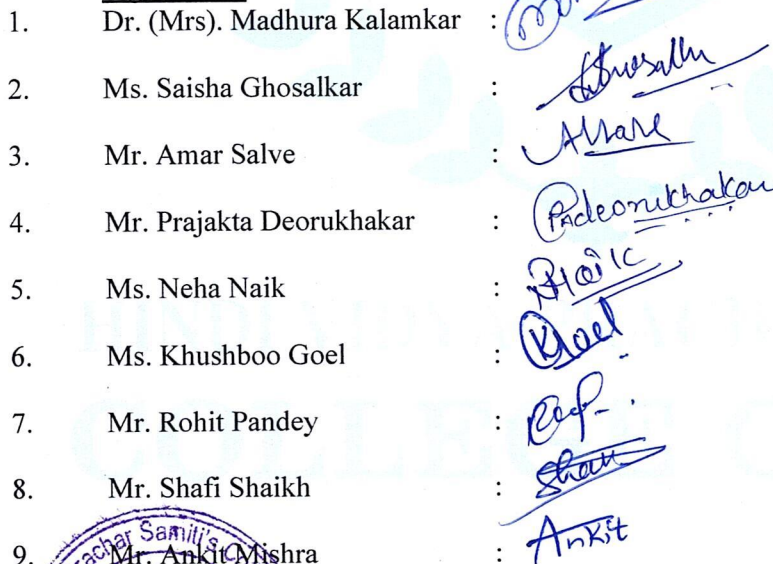 1. Dr. (Mrs). Madhura Kalamkar :
2. Ms. Saisha Ghosalkar :
3. Mr. Amar Salve :
4. Mr. Prajakta Deorukhakar : PNDeorukhakar
5. Ms. Neha Naik : NNaik
6. Ms. Khushboo Goel : KGoel
7. Mr. Rohit Pandey :
8. Mr. Shafi Shaikh :
9. Mr. Ankit Mishra : Ankit
achar Samiti's C
COLLEGE O